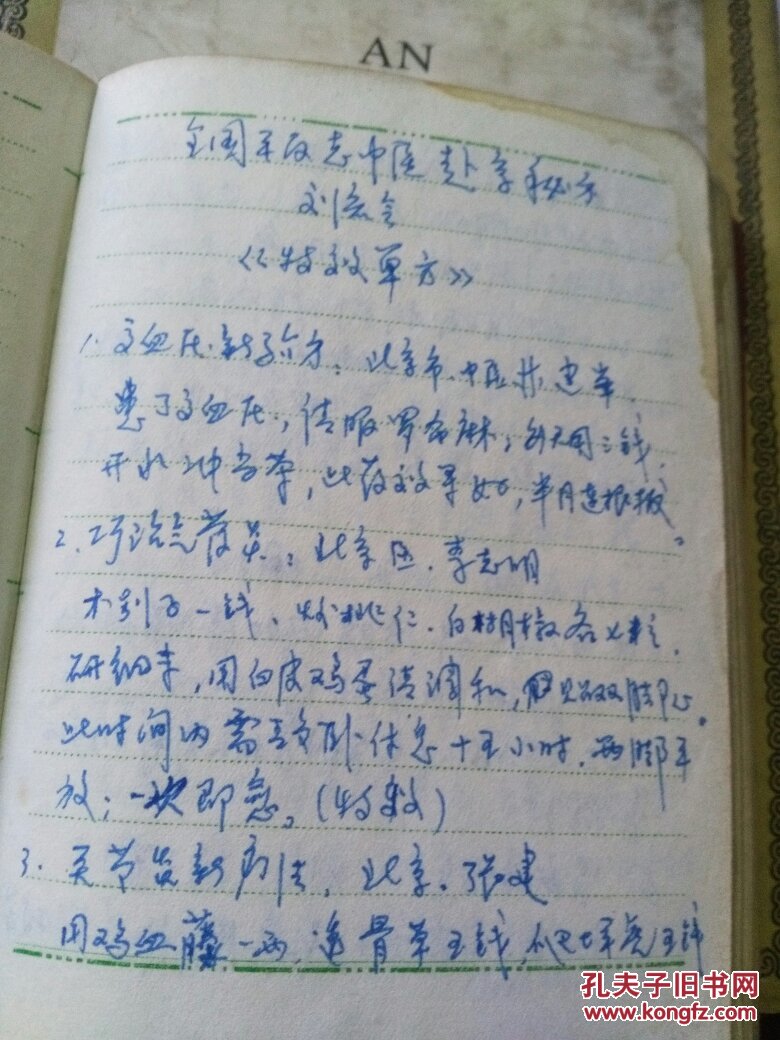 AN
全国军政老中医赴京秘方
刘
《特效单方》
1. 高血压新疗方：北京市中医林建华
患了高血压，请服罗布麻，每天用三钱，
开水冲当茶，此药效果好，半月连根拔。
2. 巧治气管炎：北京医．李志明
木别子一钱、炒桃仁．白胡椒各七粒，
研细末，用白皮鸡蛋清调和，贴双脚心。
此时间内需要卧休息十五小时．两脚平
放；一次即愈。（特效）
3. 关节炎新疗法，北京．张建
用鸡血藤一两，透骨草五钱，爬山虎五钱
孔夫子旧书网
www.kongfz.com